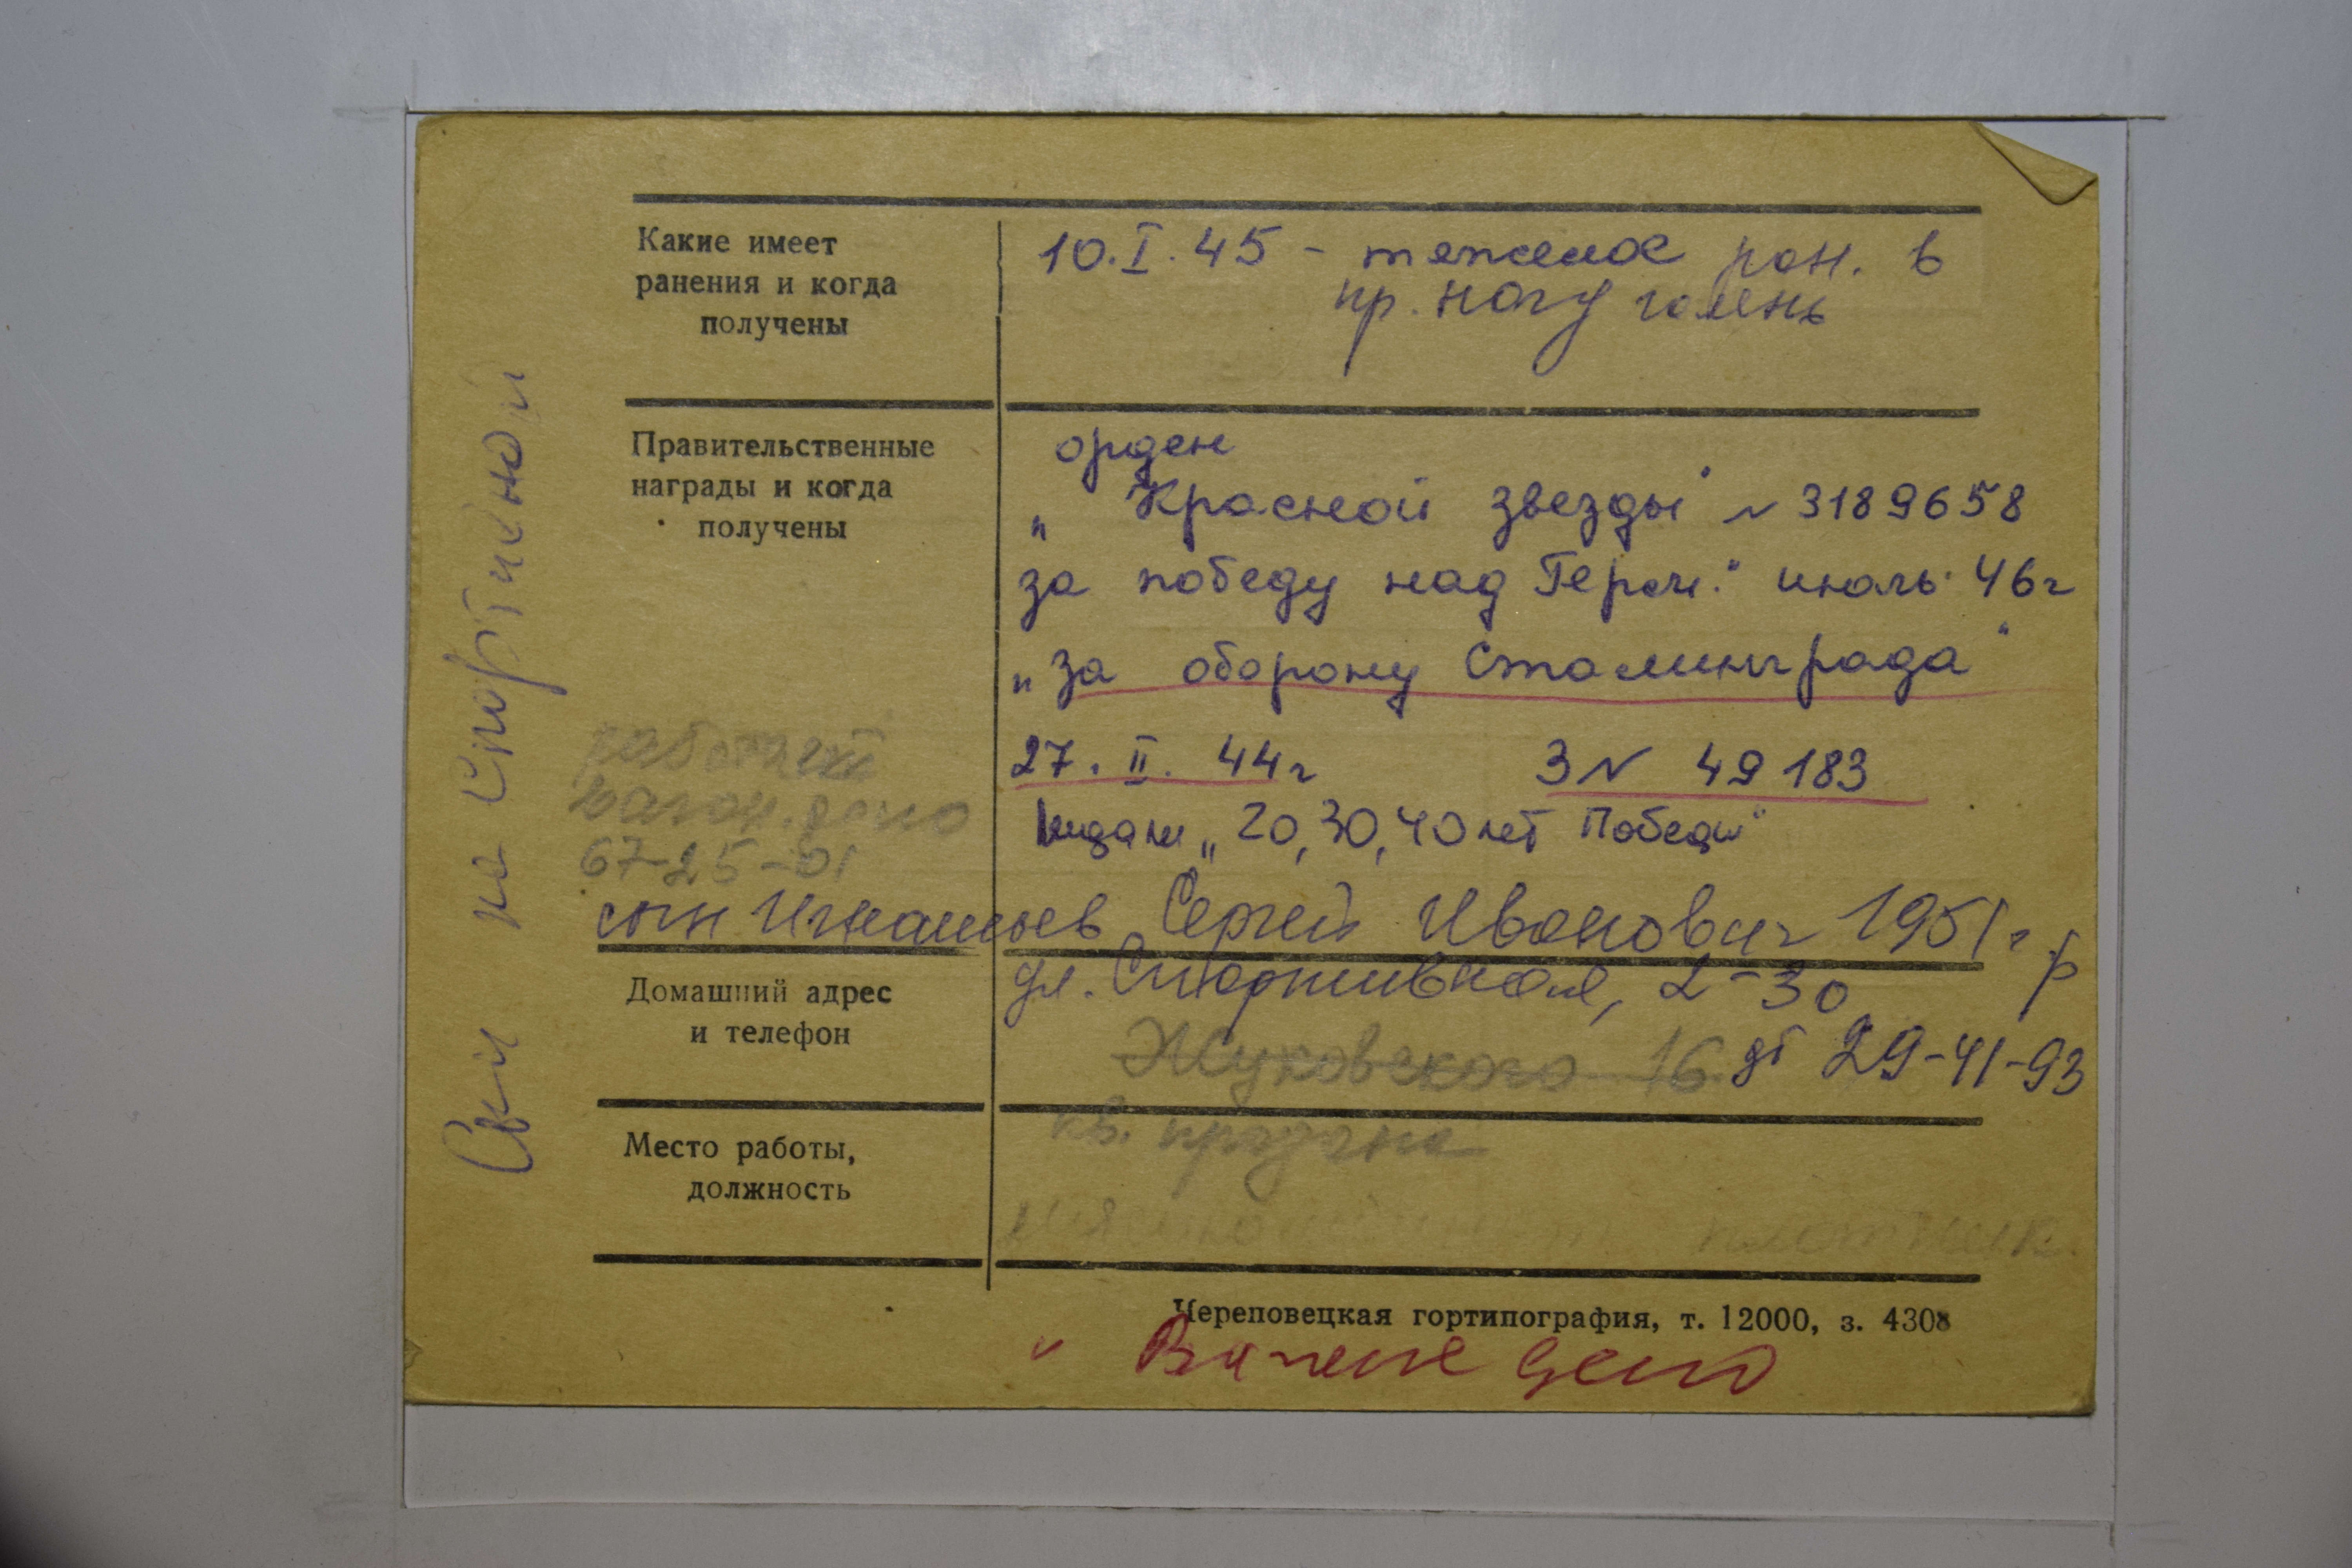 Какие имеет
ранения и когда
получены
10.I.45 - тяжелое ран. в
пр. ногу голень
Правительственные
награды и когда
получены
орден
„Красной звезды" № 3189658
за победу над Герм." июль 46г
„за оборону Сталинграда"
27.II.44г З№ 49183
медали „20,30,40 лет Победы"
работает
вагон. депо
67-25-01
сын Игнатьев Сергей Иванович 1951г р
Домашний адрес
и телефон
ул. Спортивная, 2-30
Жуковского 16 дт 29-41-93
кв. продана
Место работы,
должность
плотник
Череповецкая гортипография, т. 12000, з. 4308
депо
на Спортивной